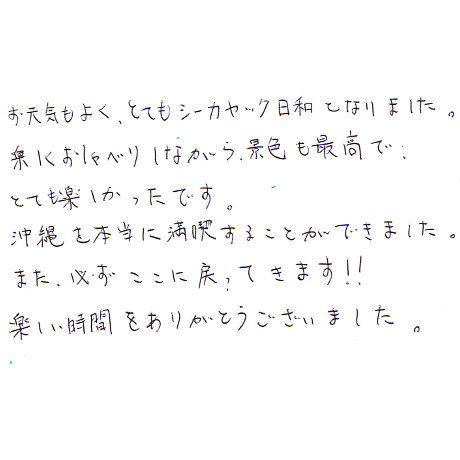 お元気もよく、とてもシーカヤック日和となりました。
楽しくおしゃべりしながら、景色も最高で、
とても楽しかったです。
沖縄を本当に満喫することができました。
また、必ずここに戻ってきます!!
楽しい時間をありがとうございました。